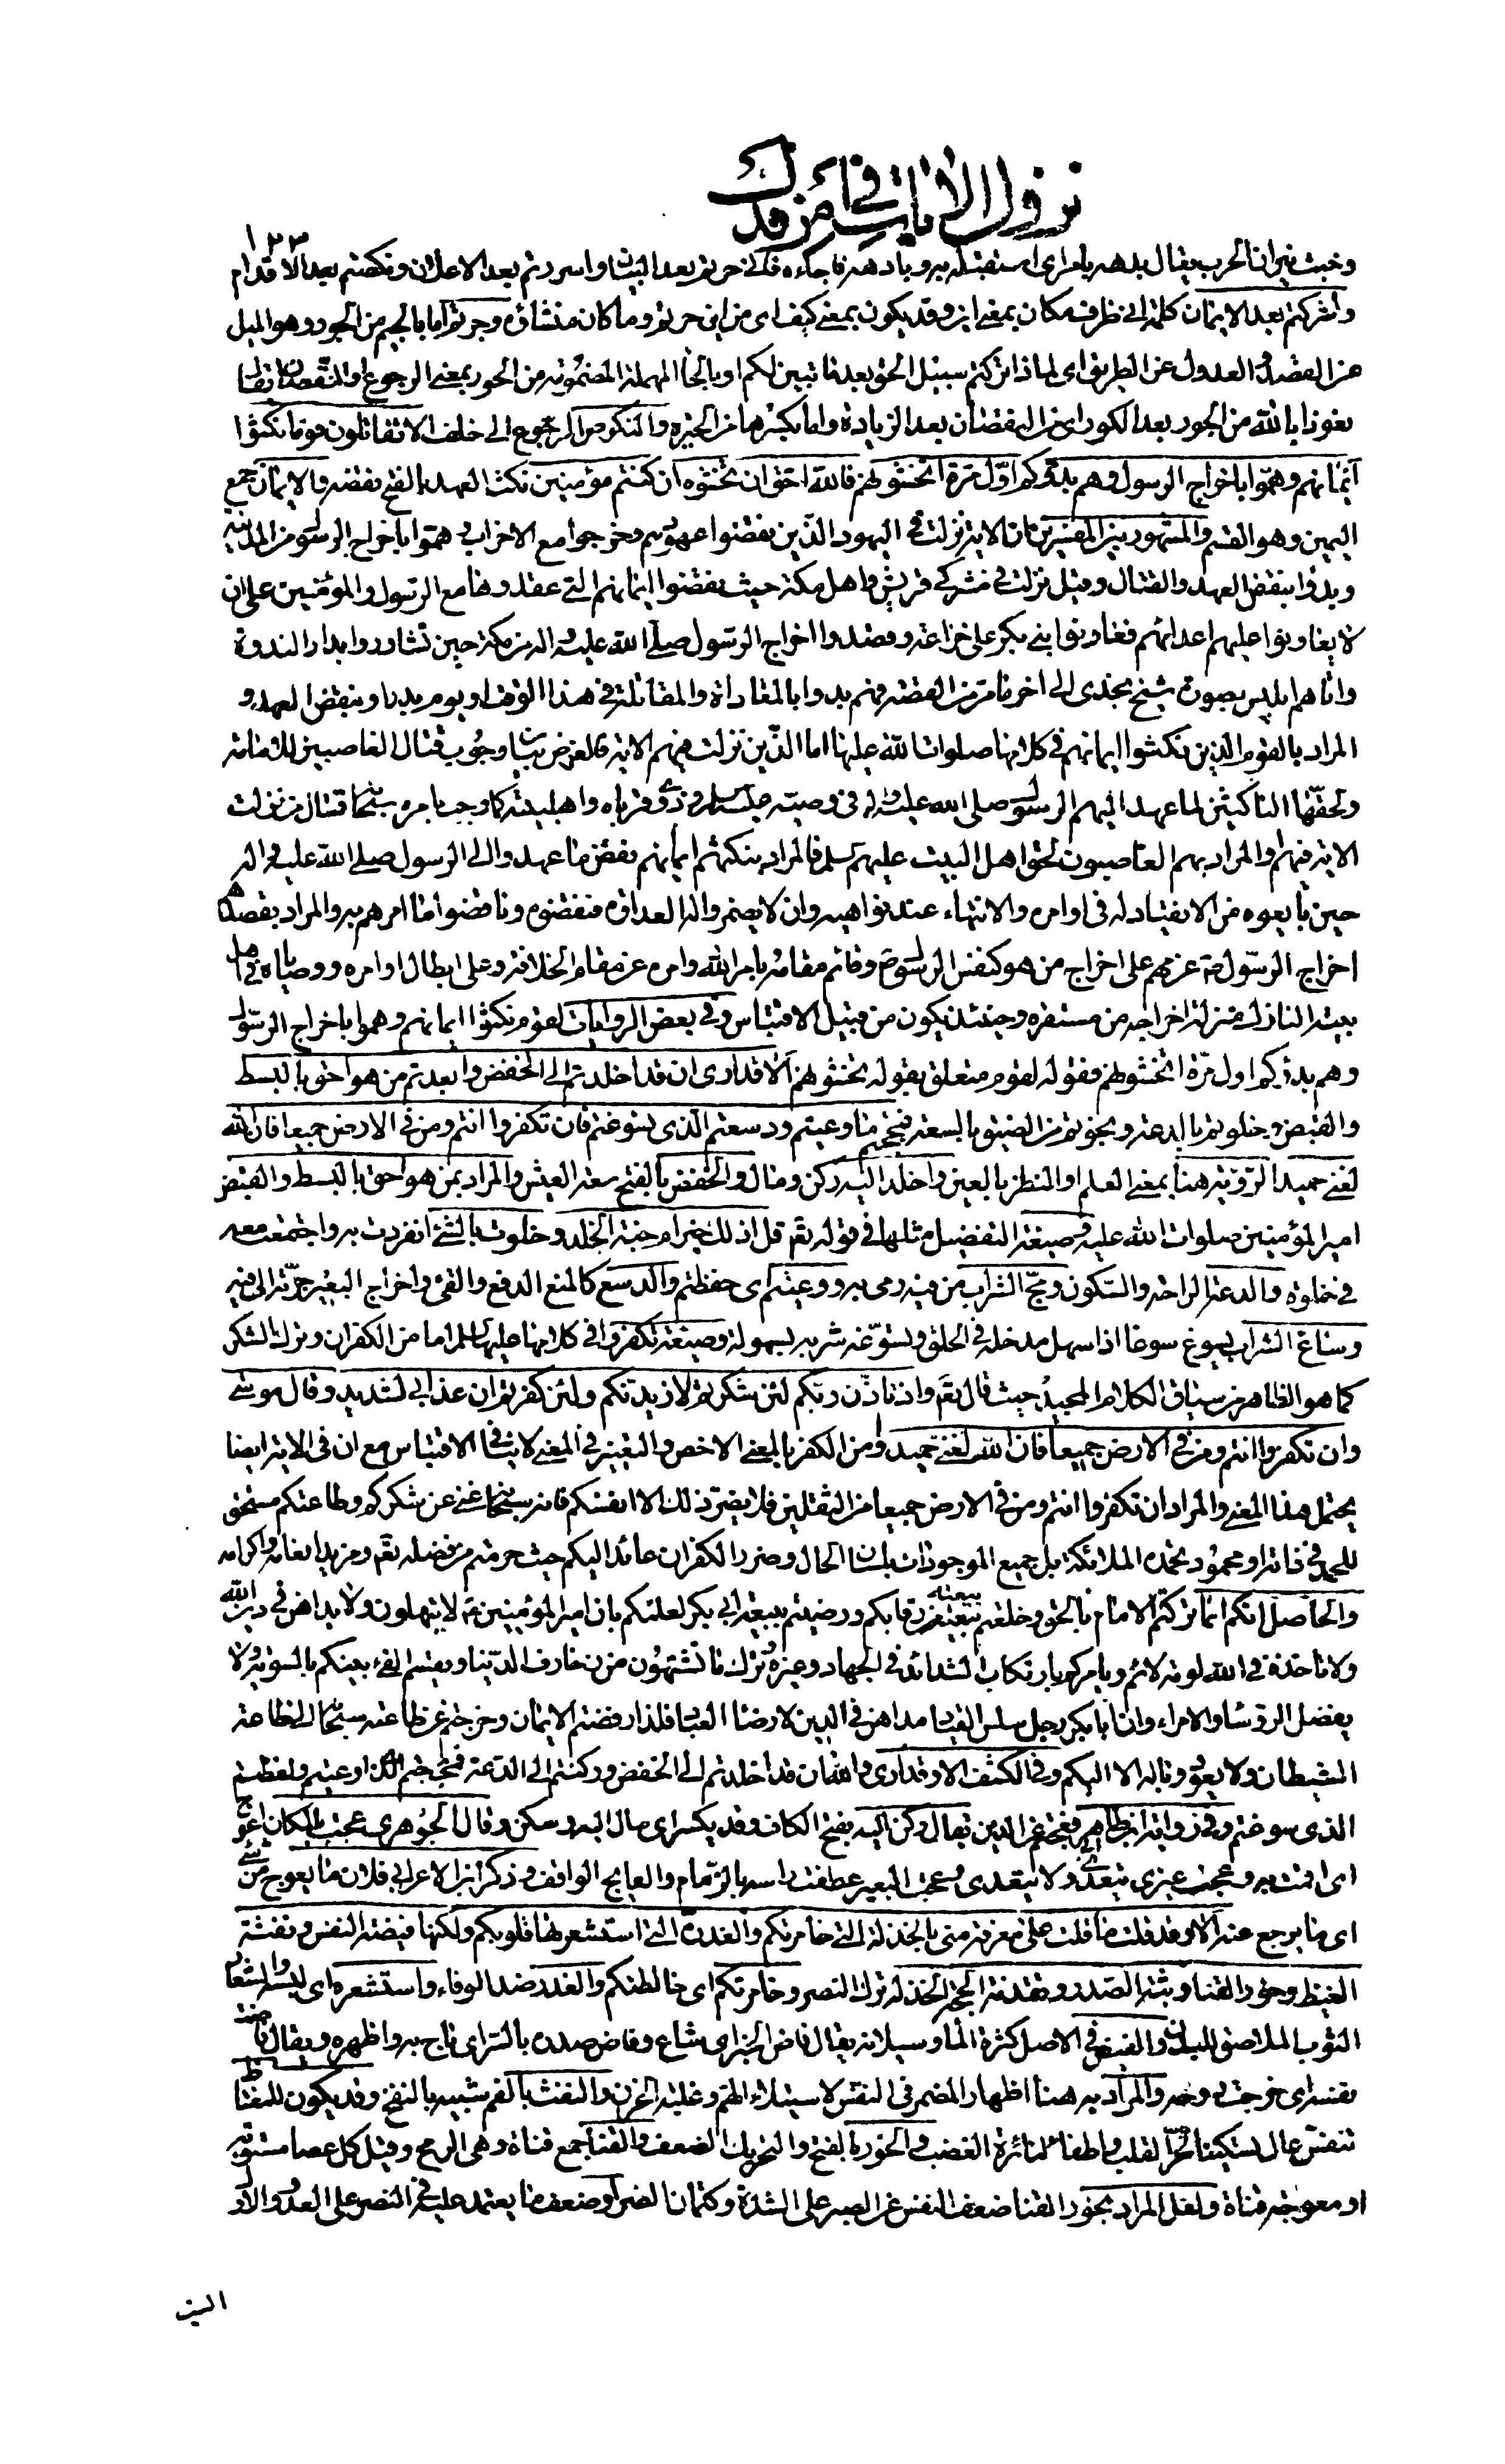 نزول الآيات في أمر فدك
١٢٣
وخبت نيران الحرب يقال بدهه بامر اي استقبله به وبادهه فاجاءه فانى حرتم بعد البيان واسررتم بعد الاعلان ونكصتم بعد الاقدام
واشركتم بعد الايمان كلمة انى ظرف مكان بمعنى اين وقد يكون بمعنى كيف اي من اين حرتم وما كان منشاؤه وجرتم اما بالجيم من الجور وهو الميل
عن القصد والعدول عن الطريق اي لماذا تركتم سبيل الحق بعد ما تبين لكم او بالحاء المهملة المضمومة من الحور بمعنى الرجوع او النقصان يقال
نعوذ بالله من الحور بعد الكور اي من النقصان بعد الزيادة واما بكسرها من الحيرة والنكوص الرجوع الى خلف الا تقاتلون قوما نكثوا
ايمانهم وهموا باخراج الرسول وهم بدؤكم اول مرة اتخشونهم فالله احق ان تخشوه ان كنتم مؤمنين نكث العهد بالفتح نقضه والايمان جمع
اليمين وهو القسم والمشهور بين المفسرين ان الاية نزلت في اليهود الذين نقضوا عهودهم وخرجوا مع الاحزاب وهموا باخراج الرسول من المدينة
وبدؤا بنقض العهد والقتال وقيل نزلت في مشركي قريش واهل مكة حيث نقضوا ايمانهم التي عقدوها مع الرسول والمؤمنين على ان
لا يعاونوا عليهم اعدائهم فعاونوا بني بكر على خزاعة وقصدوا اخراج الرسول صلى الله عليه واله من مكة حين تشاوروا بدار الندوة
واتاهم ابليس بصورة شيخ نجدى الى اخر ما مر من القصة فهم بدوا بالمعاداة والمقاتلة في هذا الوقت او يوم بدر او بنقض العهد و
المراد بالقوم الذين نكثوا ايمانهم في كلامها صلوات الله عليها اما الذين نزلت فيهم الاية فالغرض بيان وجوب قتال الغاصبين للامامة
ولحقها الناكثين لما عهد اليهم الرسول صلى الله عليه واله في وصيه عليه السلم وذي قرباه واهلبيته كما وجب بامره سبحانه قتال من نزلت
الاية فيهم او المراد بهم الغاصبون لحق اهل البيت عليهم السلم فالمراد بنكثهم ايمانهم نقض ما عهدوا الى الرسول صلى الله عليه واله
حين بايعوه من الانقياد له في اوامره والانتهاء عند نواهيه وان لا يضمروا له العداوة فنقضوه وناقضوا ما امرهم به والمراد بقصدهم
اخراج الرسول عزمهم على اخراج من هو كنفس الرسول وقائم مقامه بامر الله وامره عن مقام الخلافة وعلى ابطال اوامره ووصاياه في اهل
بيته النازل منزلة اخراجه من مستقره وحينئذ يكون من قبيل الاقتباس وفي بعض الروايات لقوم نكثوا ايمانهم وهموا باخراج الرسول
وهم بدؤكم اول مرة اتخشونهم فقوله لقوم متعلق بقوله تخشونهم الا قد ارى ان قد اخلدتم الى الخفض وابعدتم من هو احق بالبسط
والقبض وخلوتم بالدعة ونجوتم من الضيق بالسعة فمججتم ما وعيتم ودسعتم الذى تسوغتم فان تكفروا انتم ومن في الارض جميعا فان الله
لغنى حميد الرؤية هنا بمعنى العلم او النظر بالعين واخلد اليه ركن ومال والخفض بالفتح سعة العيش والمراد بمن هو احق بالبسط والقبض
امير المؤمنين صلوات الله عليه وصيغة التفضيل مثلها في قوله تعالى قل اذلك خير ام جنة الخلد وخلوت بالشئ انفردت به واجتمعت معه
في خلوة والدعة الراحة والسكون ومج الشراب من فيه رمى به ووعيتم اي حفظتم والدسع كالمنع الدفع والقئ واخراج البعير جرته الى فيه
وساغ الشراب يسوغ سوغا اذا سهل مدخله في الحلق وتسوغه شربه بسهولة وصيغة تكفروا في كلامها عليها السلم اما من الكفران وترك الشكر
كما هو الظاهر من سياق الكلام المجيد حيث قال تعالى واذ تاذن ربكم لئن شكرتم لازيدنكم ولئن كفرتم ان عذابي لشديد وقال موسى
وان تكفروا انتم ومن في الارض جميعا فان الله لغنى حميد او من الكفر بالمعنى الاخص والتغيير في المعنى لا ينافي الاقتباس مع ان في الاية ايضا
يحتمل هذا المعنى والمراد ان تكفروا انتم ومن في الارض جميعا من الثقلين فلا يضر ذلك الا انفسكم فانه سبحانه غني عن شكركم وطاعتكم مستحق
للحمد في ذاته او محمود تحمده الملائكة بل جميع الموجودات بلسان الحال وضرر الكفران عائد اليكم حيث حرمتم من فضله تعالى ومزيد انعامه واكرامه
والحاصل انكم انما تركتم الامام بالحق وخلعتم بيعته من رقابكم ورضيتم ببيعة ابي بكر لعلمكم بان امير المؤمنين لا يتهاون ولا يداهن في دين الله
ولا تاخذه في الله لومة لائم ويامركم بارتكاب الشدائد في الجهاد وغيره وترك ما تشتهون من زخارف الدنيا ويقسم الفئ بينكم بالسوية ولا
يفضل الرؤسا والامراء وان ابا بكر رجل سلس القياد مداهن في الدين لارضاء العباد فلذا رفضتم الايمان وخرجتم عن طاعته سبحانه الى طاعة
الشيطان ولا يعود وباله الا اليكم وفي الكشف الا وقد ارى والله ان قد اخلدتم الى الخفض وركنتم الى الدعة فمججتم الذى اوعيتم ولفظتم
الذى سوغتم وفي رواية ابن ابي طاهر فعجتم عن الدين يقال ركن اليه بفتح الكاف وقد يكسر اي مال اليه وسكن وقال الجوهري عجت بالمكان اعوج
اى اقمت به وعجت غيرى يتعدى ولا يتعدى وعجت البعير عطفت راسه بالزمام والعايج الواقف وذكر ابن الاعرابي فلان ما يعوج من شئ
اى ما يرجع عنه الا وقد قلت ما قلت على معرفة مني بالخذلة التي خامرتكم والغدرة التي استشعرتها قلوبكم ولكنها فيضة النفس ونفثة
الغيظ وخور القنا وبثة الصدر وتقدمة الحجة الخذلة ترك النصر وخامرتكم اى خالطتكم والغدر ضد الوفاء واستشعره اى لبسه والشعار
الثوب الملاصق للبدن والفيض في الاصل كثرة الماء وسيلانه يقال فاض الخبر اى شاع وفاض صدره بالسر اى باح به واظهره ويقال فاضت
نفسه اى خرجت روحه والمراد به هنا اظهار المضمر في النفس لاستيلاء الهم وغلبة الحزن والنفث بالفم شبيه بالنفخ وقد يكون للمغتاظ
تنفس عال تسكينا لحر القلب واطفاء لنائرة الغضب والخور بالفتح والتحريك الضعف والقنا جمع قناة وهى الرمح وقيل كل عصا مستوية
او معوجة قناة ولعل المراد بخور القنا ضعف النفس عن الصبر على الشدة وكتمان الضر او ضعف ما يعتمد عليه في النصر على العدو والاول